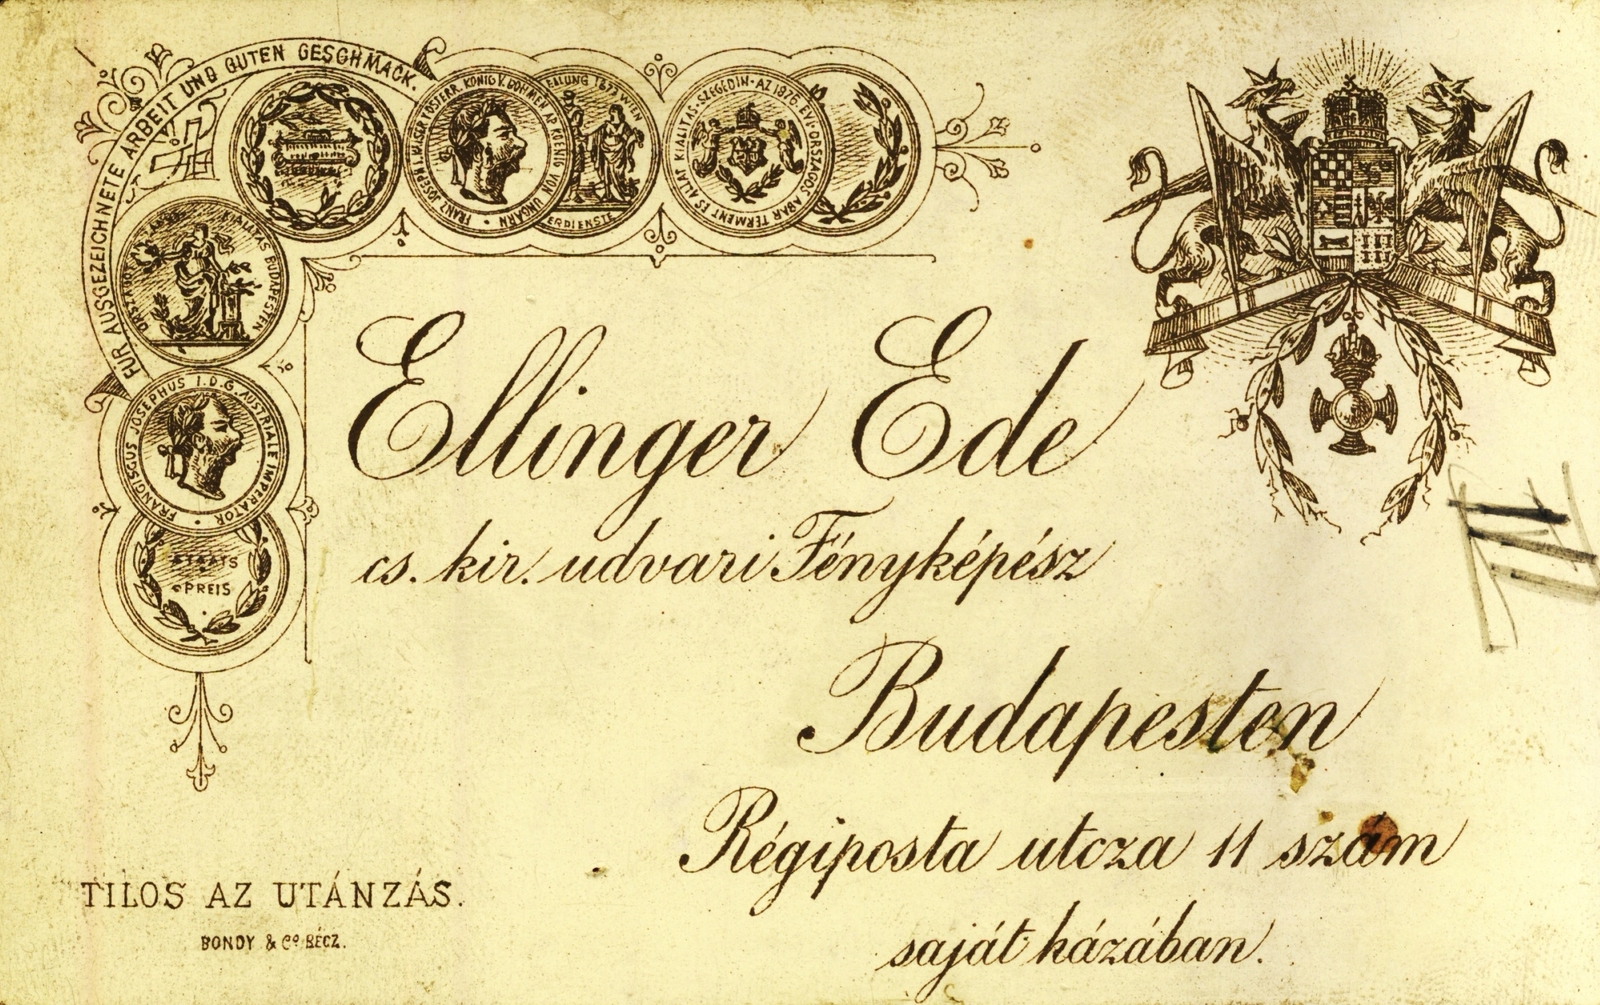 FÜR AUSGEZEICHNETE ARBEIT UND GUTEN GESCHMACK.
FRANZ JOSEPH I. KAISER V. OESTERR. KÖNIG V. BÖHMEN
KOENIG VON UNGARN
1873 WIEN
VERDIENSTE
SZEGEDIN · AZ 1876. ÉVI ORSZÁGOS
TERMENY ES ÁLLAT KIÁLITÁS
BUDAPESTEN
FRANCISCUS JOSEPHUS I. D. G. AUSTRIAE IMPERATOR
STAATS
PREIS
Ellinger Ede
cs. kir. udvari Fényképész
Budapesten
Régiposta utcza 11 szám
saját házában.
TILOS AZ UTÁNZÁS.
BONDY & Co BÉCZ.